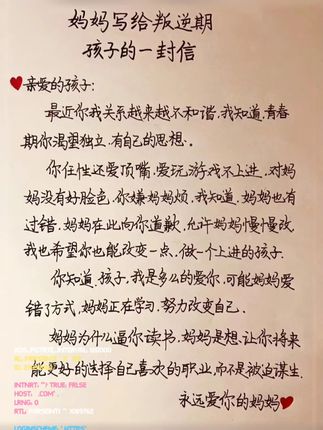 妈妈写给叛逆期
孩子的一封信
亲爱的孩子:
最近你我关系越来越不和谐.我知道.青春
期你渴望独立.有自己的思想.
你任性还爱顶嘴.爱玩游戏不上进.对妈
妈没有好脸色.你嫌妈妈烦.我知道.妈妈也有
过错.妈妈在此向你道歉.允许妈妈慢慢改.
我也希望你也能改变一点.做一个上进的孩子.
你知道.孩子.我是多么的爱你.可能妈妈爱
错了方式.妈妈正在学习.努力改变自己.
妈妈为什么逼你读书.妈妈是想.让你将来
能更好的选择自己喜欢的职业.而不是被迫谋生.
INTNRT: ") TRUE: FALSE
HOST: .COM".
LRNG: 0
永远爱你的妈妈